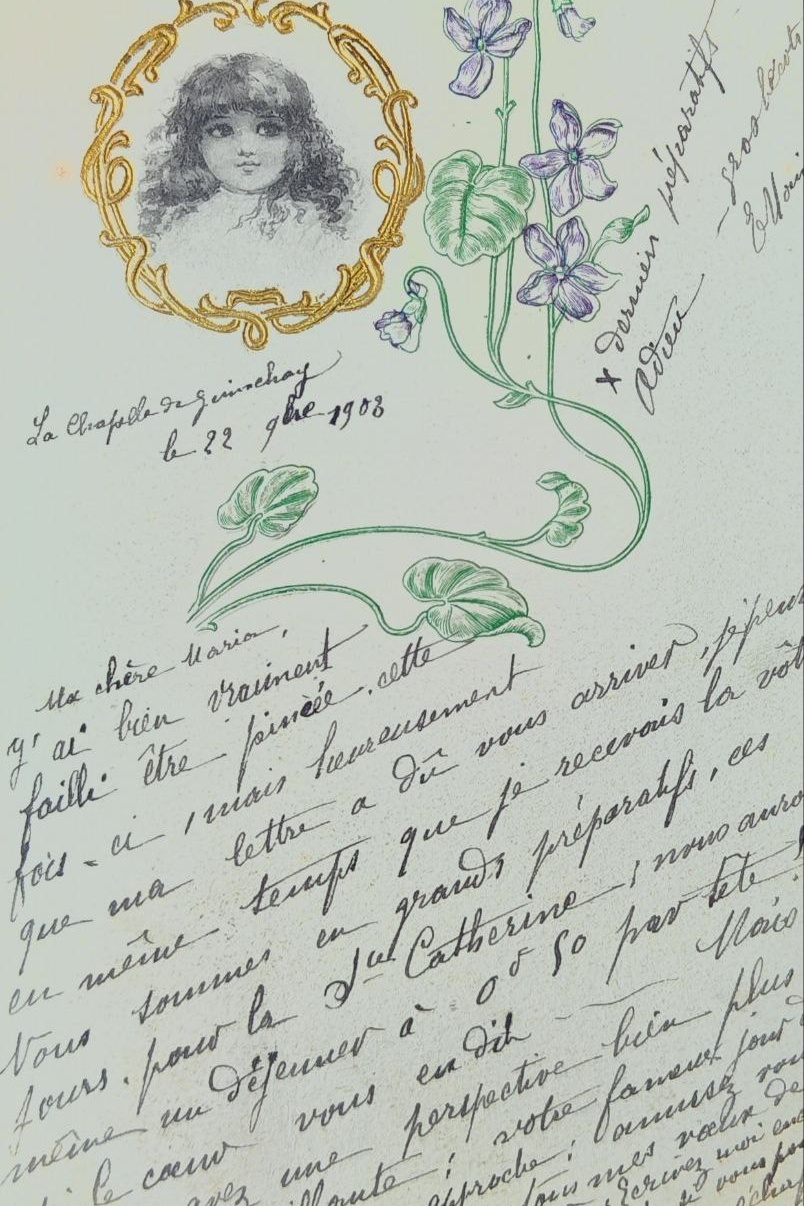 La Chapelle de Guinchay
le 22 9bre 1903
Ma chère Maria,
J'ai bien vraiment
failli être pincée cette
fois-ci, mais heureusement
que ma lettre a dû vous arriver, je pense
en même temps que je recevais la vôt
Nous sommes en grands préparatifs, ces
jours. pour la Ste Catherine ; nous auro
même un déjeuner à 0f 50 par tête !
si le cœur vous en dit — Mais
avez une perspective bien plus
llante ; votre fameux jour
approche ; amusez vou
tous mes vœux de
Écrivez moi enc
si vous pou
+ derniers préparatifs
Adieu
- gros bécots